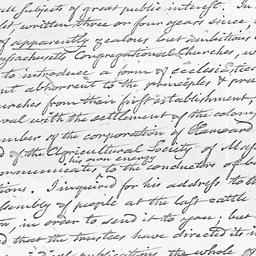 subjects of great public interest. In
let, written three or four years since,
of apparently zealous but ambitious
assachusetts Congregational Churches, w
to introduce a form of ecclesiastica
nt abhorrent to the principles & prac
urches from their first establishment,
val with the settlement of the colony
mber of the corporation of Harvard
d of the Agricultural Society of Mass
his own energy
ommunicates to the conductors of
tions. I inquired for his address to th
sembly of people at the last cattle
n, in order to send it to you; but
d that the trustees have directed its in
publications, the whole of